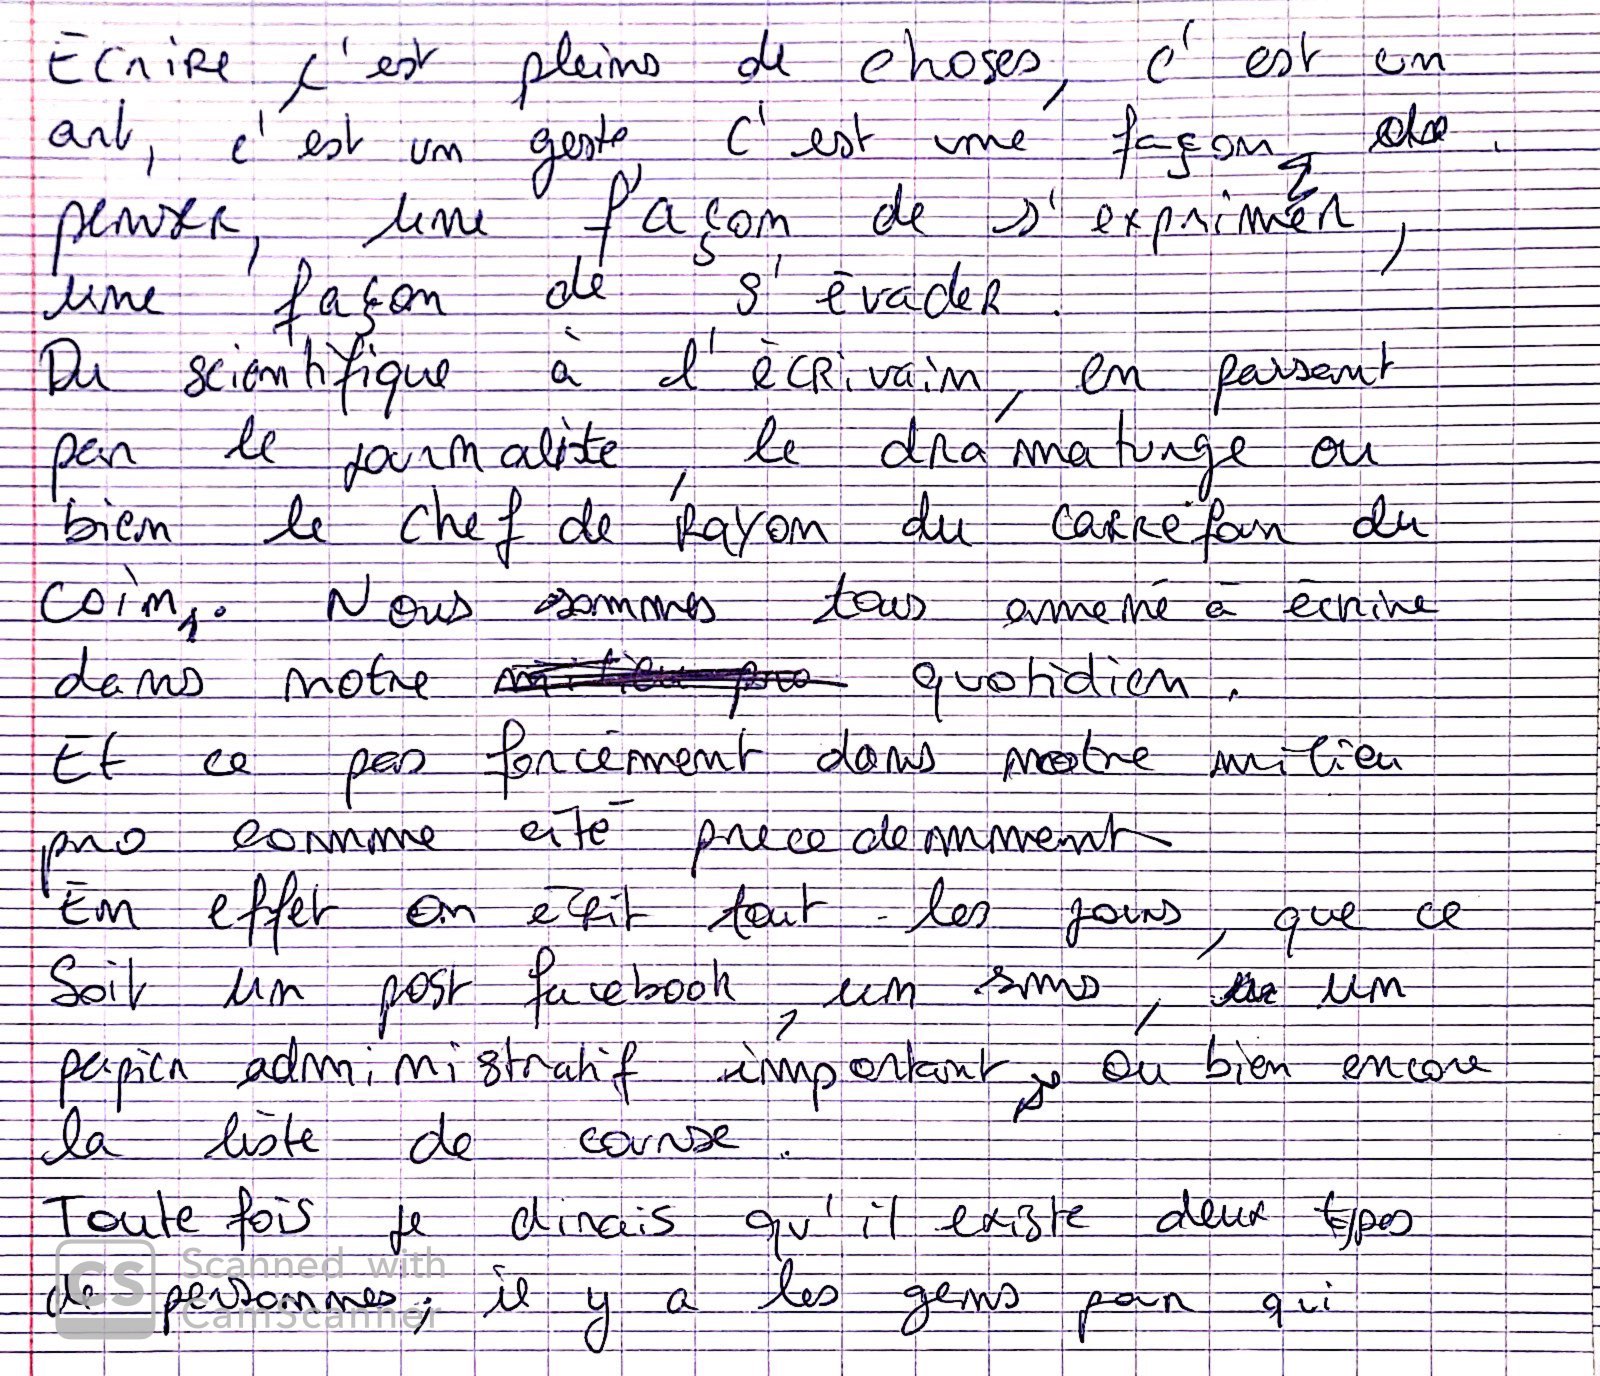 Écrire, c'est pleins de choses, c'est un
art, c'est un geste, c'est une façon de
penser, une façon de s'exprimer,
une façon de s'évader.
Du scientifique à l'écrivain, en passant
par le journaliste, le dramaturge ou
bien le chef de rayon du carrefour du
coin. Nous sommes tous amené à écrire
dans notre milieu pro quotidien.
Et ce pas forcément dans notre milieu
pro comme cité précedemment
En effet on écrit tout les jours, que ce
soit un post facebook, un sms, un
papier administratif important, ou bien encore
la liste de course.
Toutefois je dirais qu'il existe deux types
de personnes; il y a les gens pour qui
CS Scanned with
CamScanner